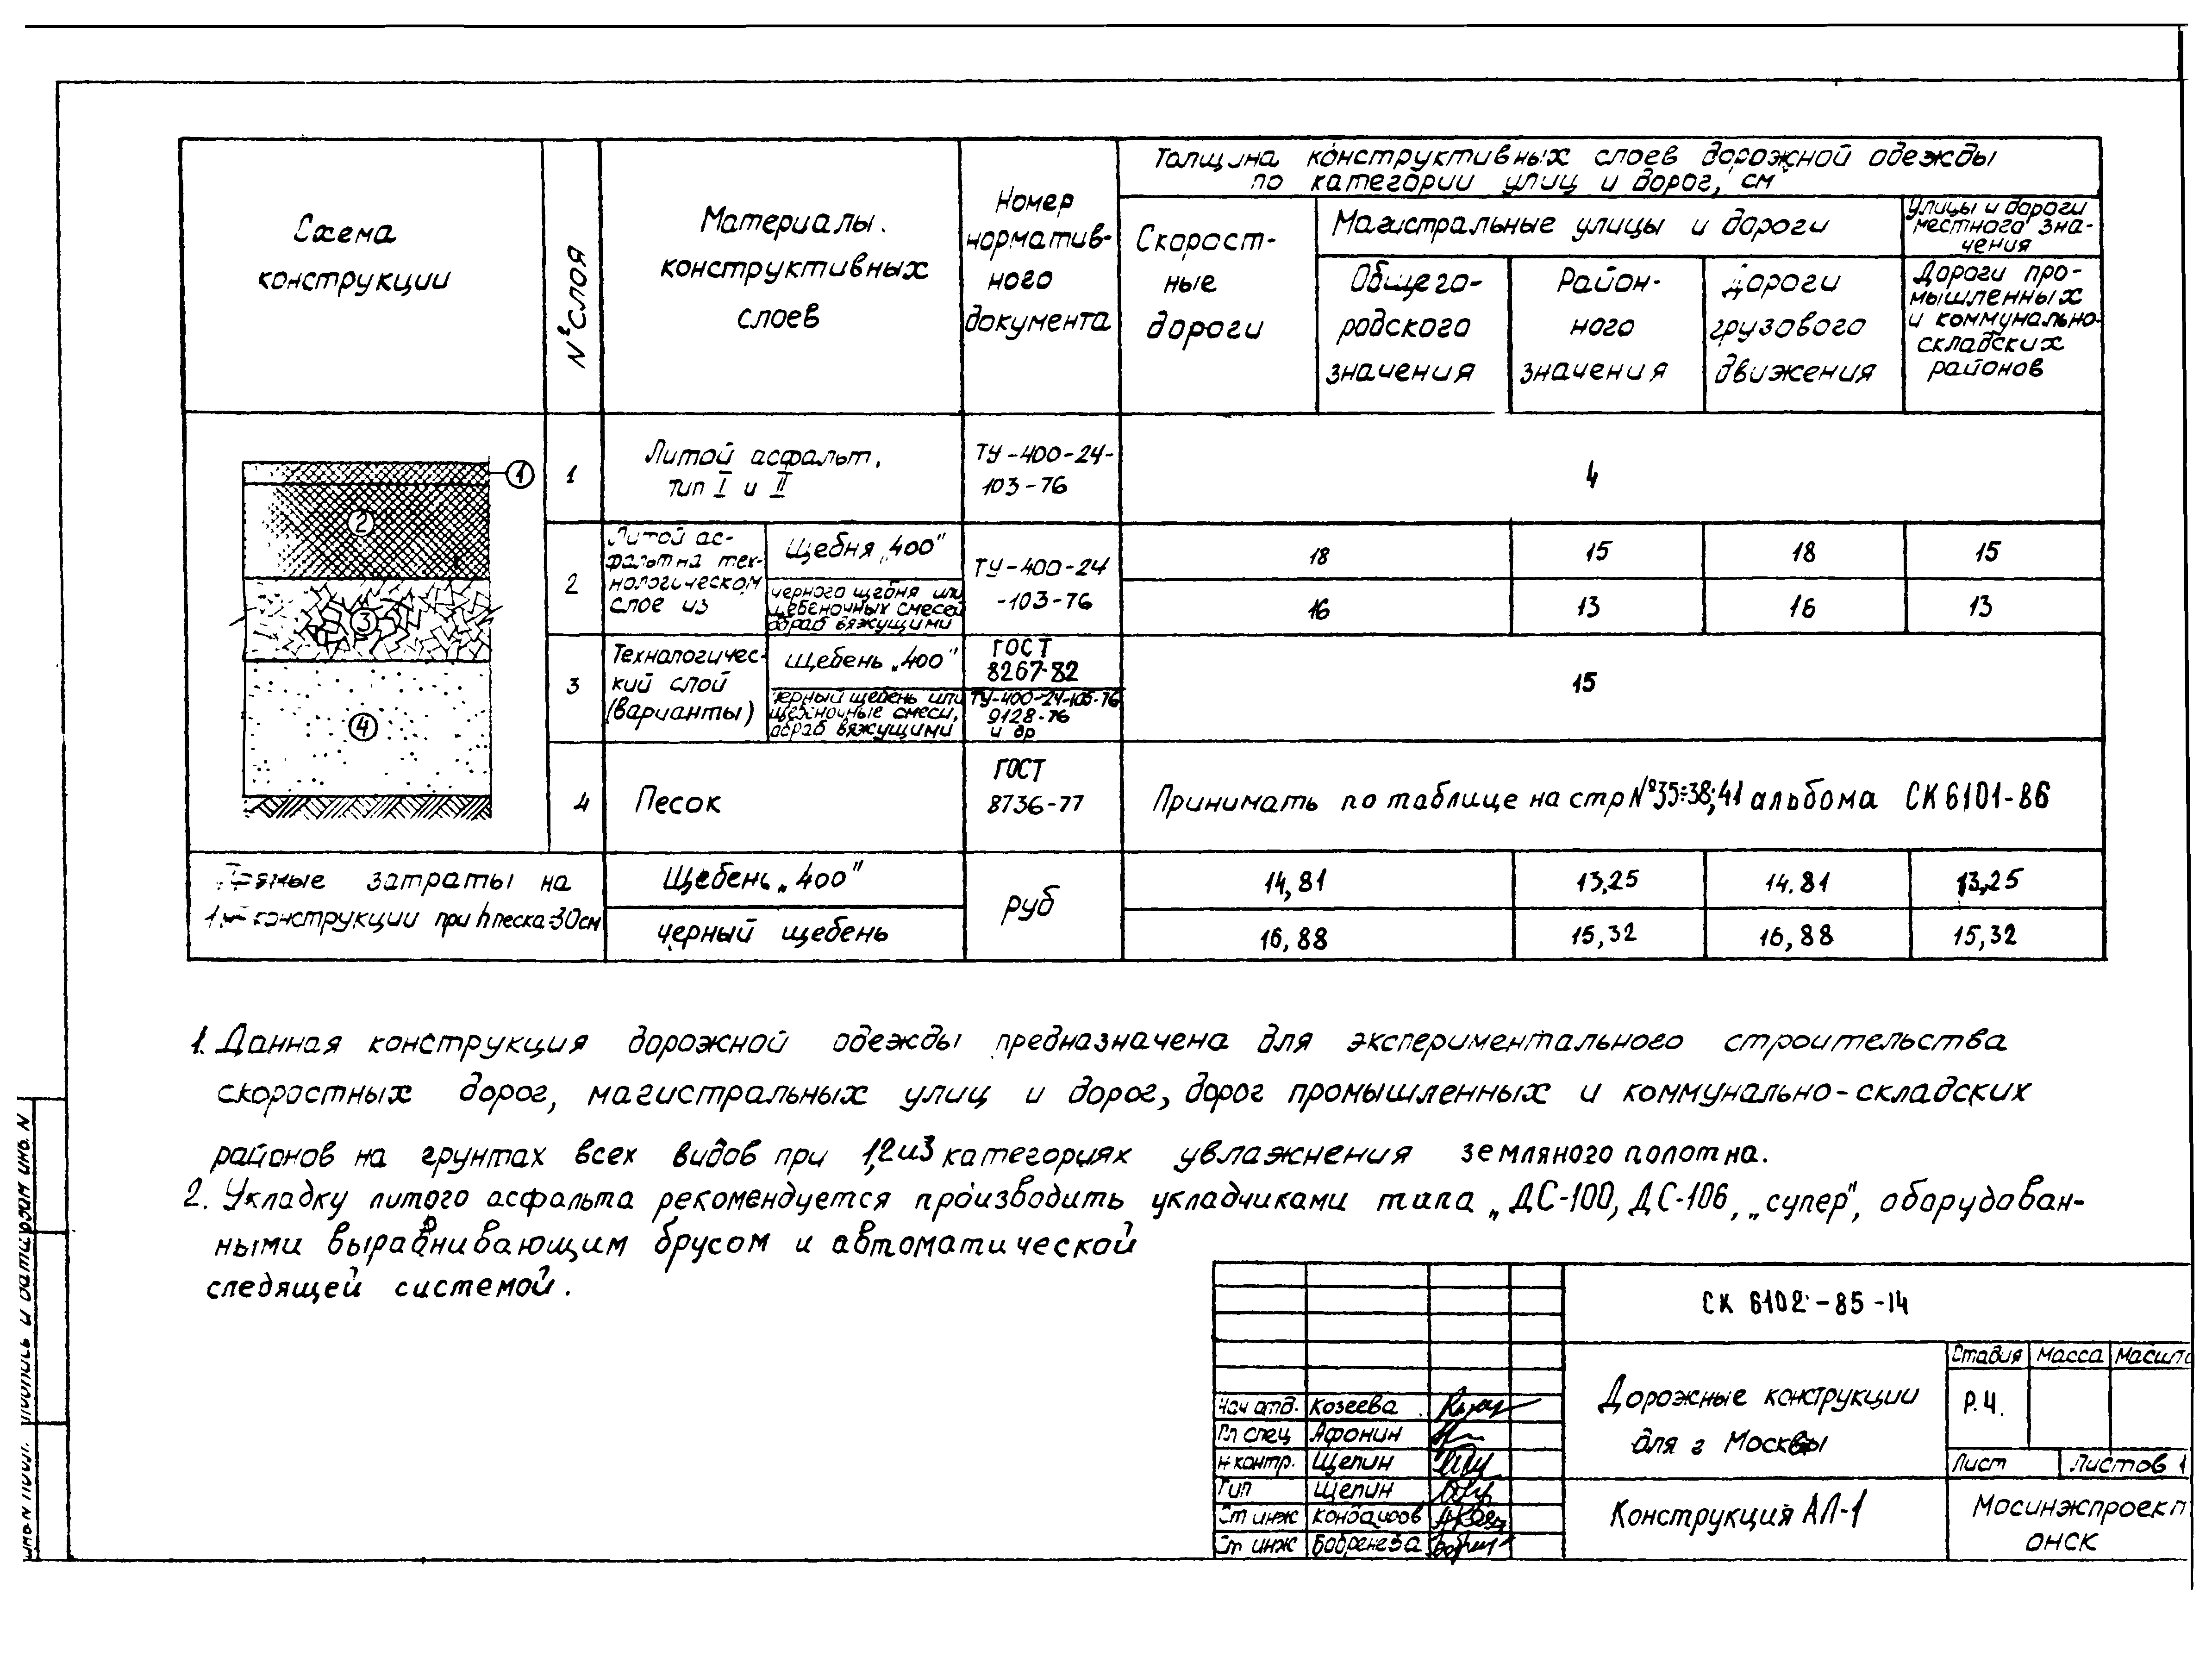 Схема
конструкции
№ слоя
Материалы
конструктивных
слоев
Номер
норматив-
ного
документа
Толщина конструктивных слоев дорожной одежды
по категории улиц и дорог, см
Скорост-
ные
дороги
Магистральные улицы и дороги
Общего-
родского
значения
Район-
ного
значения
Дороги
грузового
движения
Улицы и дороги
местного зна-
чения
Дороги про-
мышленных
и коммунально-
складских
районов
1
2
3
4
1
Литой асфальт,
тип I и II
ТУ-400-24-
103-76
4
2
Литой ас-
фальт на тех-
нологическом
слое из
Щебня „400"
черного щебня или
щебеночных смесей
обраб вяжущими
ТУ-400-24
-103-76
18 15 18 15
16 13 16 13
3
Технологичес-
кий слой
(варианты)
Щебень „400"
черный щебень или
щебеночные смеси,
обраб вяжущими
ГОСТ
8267-82
ТУ-400-24-105-76
9128-76
и др
15
4
Песок
ГОСТ
8736-77
Принимать по таблице на стр №35÷38;41 альбома СК 6101-86
Прямые затраты на
1м² конструкции при h песка=30см
Щебень „400"
черный щебень
руб
14,81 13,25 14.81 13,25
16,88 15,32 16,88 15,32
1. Данная конструкция дорожной одежды предназначена для экспериментального строительства
скоростных дорог, магистральных улиц и дорог, дорог промышленных и коммунально-складских
районов на грунтах всех видов при 1,2и3 категориях увлажнения земляного полотна.
2. Укладку литого асфальта рекомендуется производить укладчиками типа „ДС-100, ДС-106, „супер", оборудован-
ными выравнивающим брусом и автоматической
следящей системой.
СК 6102-85-14
Дорожные конструкции
для г Москвы
Стадия Масса
Р.Ч.
Лист Листов 1
Конструкция АЛ-1
Мосинжпроект
ОНСК
Нач отд. Козеева
Гл спец Афонин
Н контр. Щепин
Гип Щепин
Ст инж
Ст инж Бобренева
Инв N подл. Подпись и дата Взам инв. N